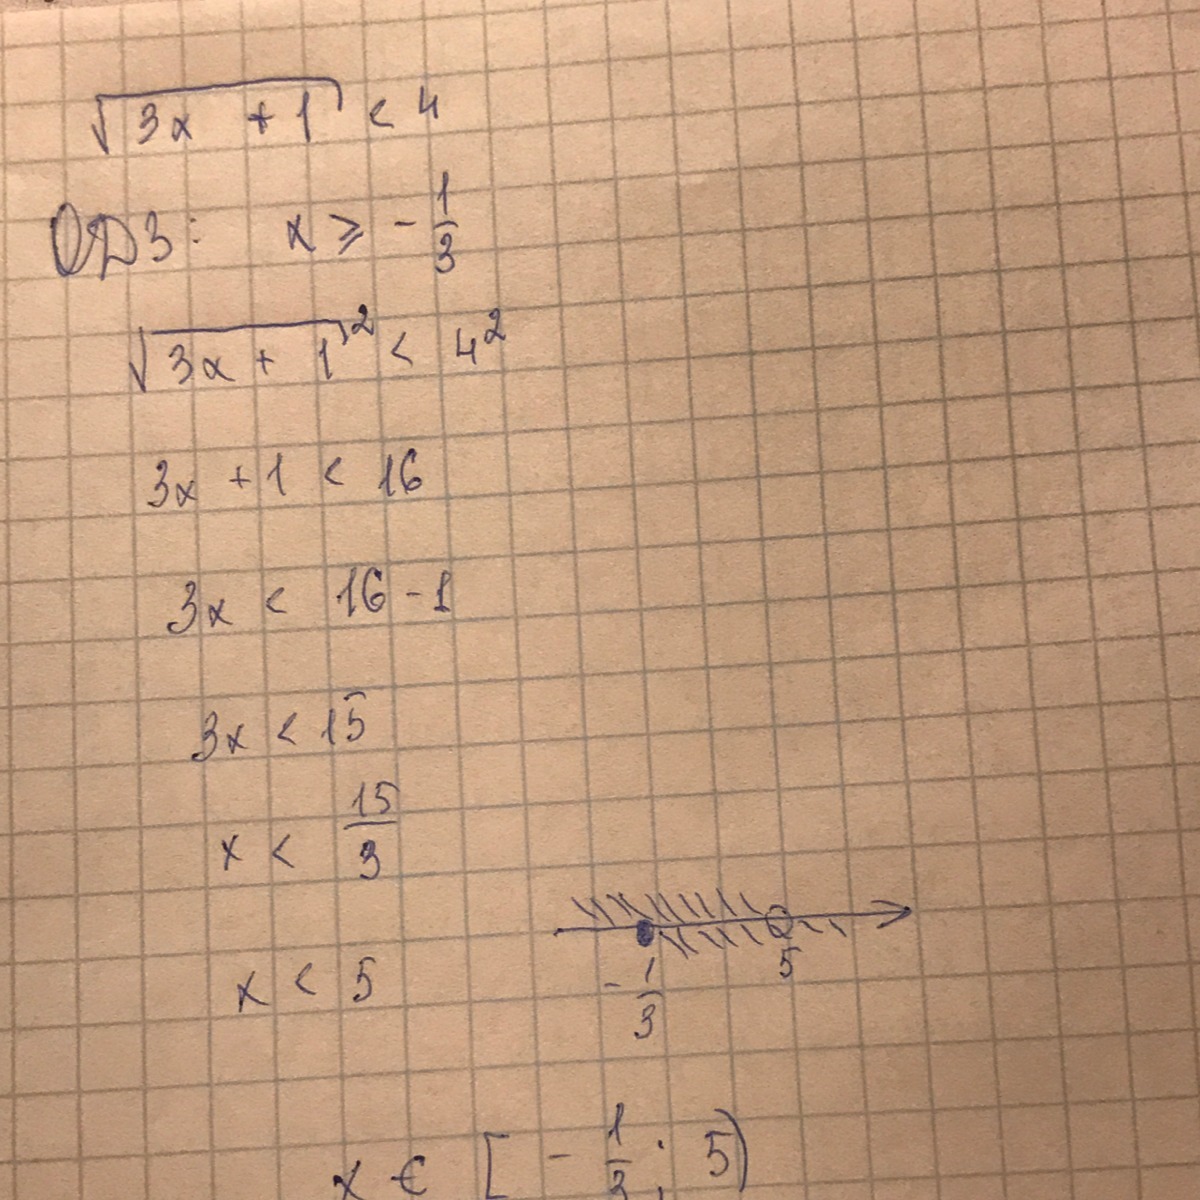 √3x + 1 < 4
ОДЗ: x ≥ - 1/3
√3x + 1² < 4²
3x + 1 < 16
3x < 16 - 1
3x < 15
x < 15/3
x < 5
- 1/3 5
x ∈ [ - 1/3 ; 5)